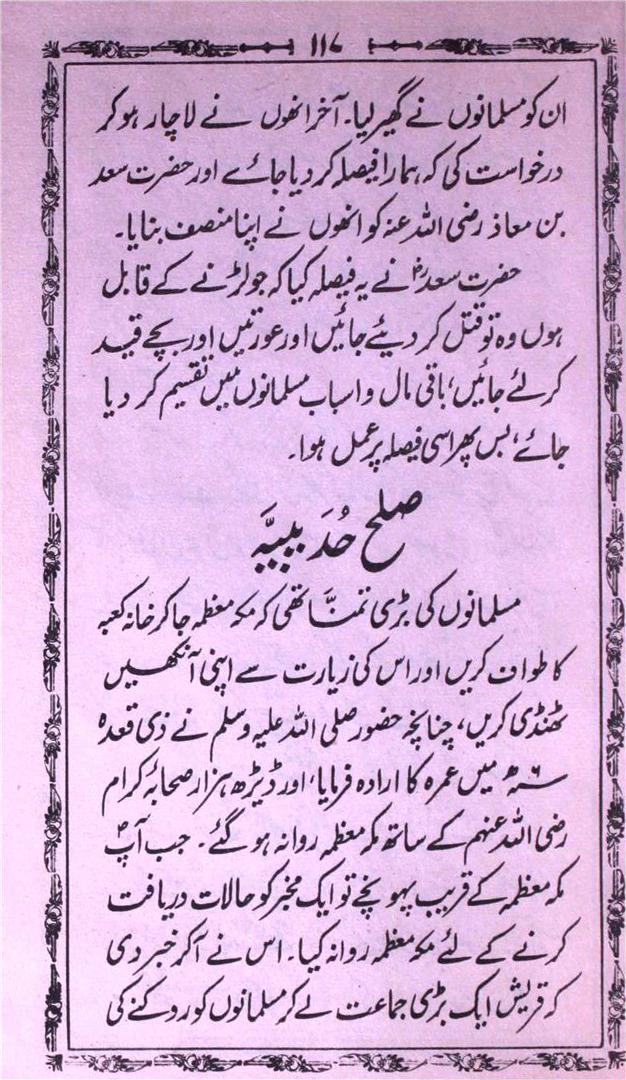 ۱۱۷
ان کو مسلمانوں نے گھیر لیا۔ آخر انھوں نے لاچار ہو کر
درخواست کی کہ ہمارا فیصلہ کر دیا جائے اور حضرت سعد
بن معاذ رضی اللہ عنہ کو انھوں نے اپنا منصف بنایا۔
حضرت سعدؓ نے یہ فیصلہ کیا کہ جو لڑنے کے قابل
ہوں وہ تو قتل کر دیئے جائیں اور عورتیں اور بچے قید
کر لئے جائیں، باقی مال و اسباب مسلمانوں میں تقسیم کر دیا
جائے، بس پھر اسی فیصلہ پر عمل ہوا۔
صلح حُدَیبِیَّہ
مسلمانوں کی بڑی تمنّا تھی کہ مکہ معظمہ جا کر خانہ کعبہ
کا طواف کریں اور اس کی زیارت سے اپنی آنکھیں
ٹھنڈی کریں، چنانچہ حضور صلی اللہ علیہ وسلم نے ذی قعدہ
۶ھ میں عمرہ کا ارادہ فرمایا، اور ڈیڑھ ہزار صحابۂ کرام
رضی اللہ عنہم کے ساتھ مکہ معظمہ روانہ ہو گئے۔ جب آپؐ
مکہ معظمہ کے قریب پہونچے تو ایک مخبر کو حالات دریافت
کرنے کے لئے مکہ معظمہ روانہ کیا۔ اس نے آ کر خبر دی
کہ قریش ایک بڑی جماعت لے کر مسلمانوں کو روکنے کی